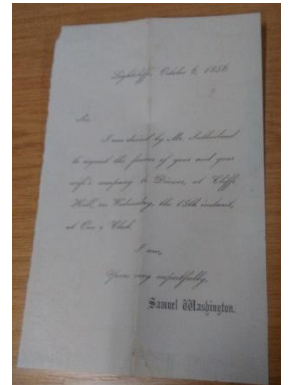 Lightcliffe, October 6, 1856.
Sir,
I am desired by Mr. Sutherland
to request the favor of your and your
wife's company to Dinner, at Cliffe
Hill, on Wednesday, the 15th instant,
at One o'Clock.
I am,
Yours very respectfully,
Samuel Washington.